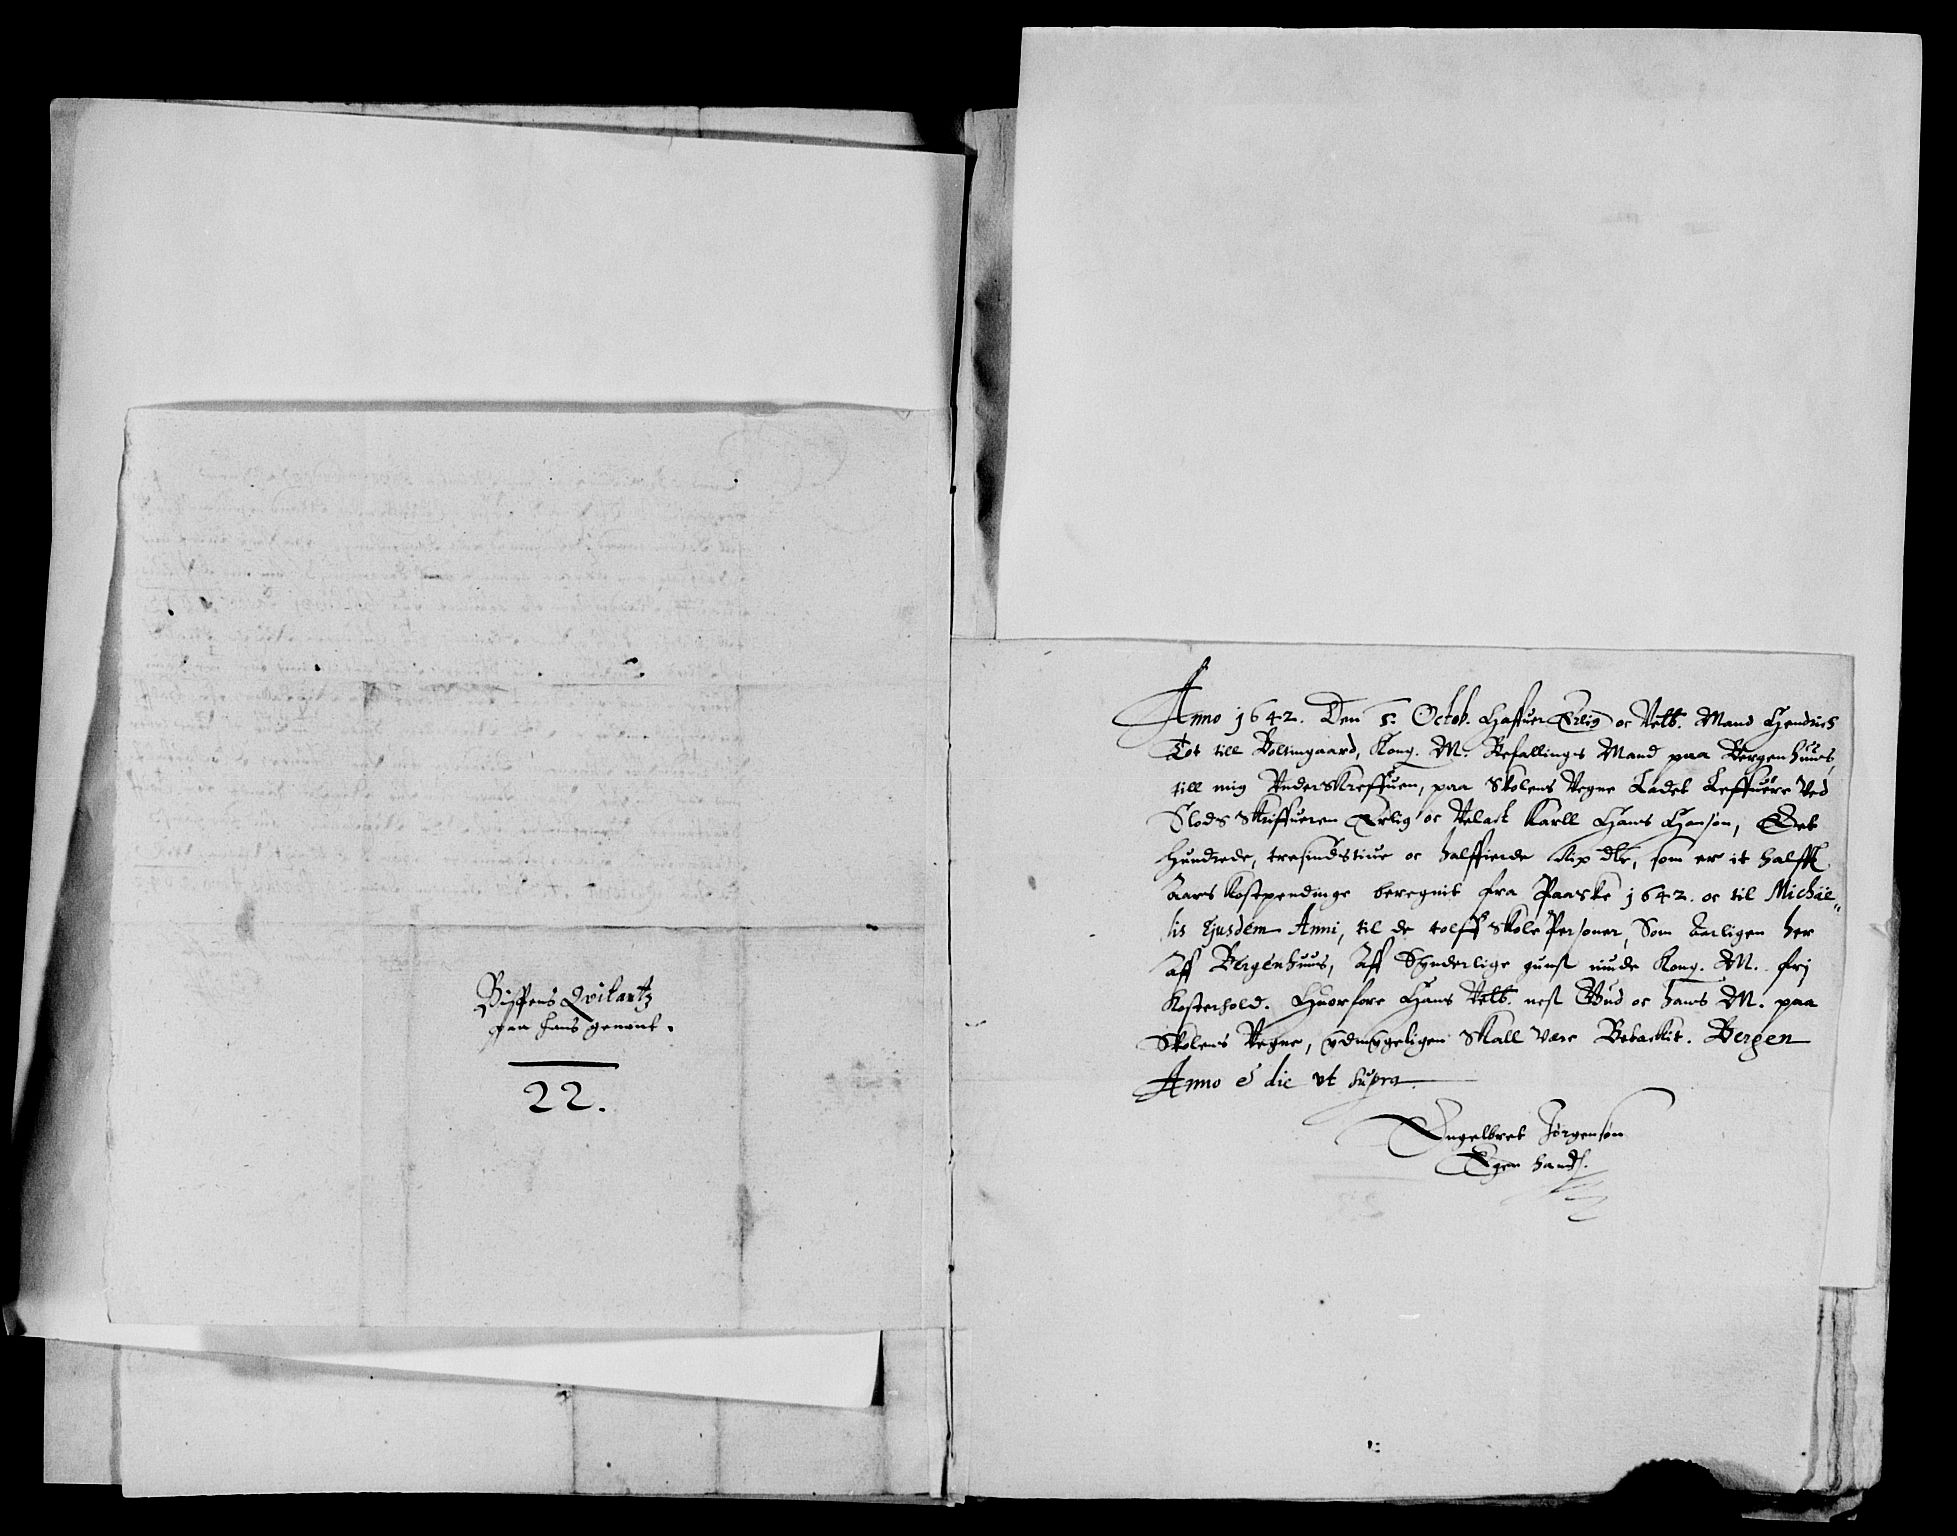 Bispens Qvitantz
paa hans genant.
22.
Anno 1642. Den 5. Octob. Haffuer Erlig oc Velb. Mand Hendrich
Tot till Boltinggaard, Kong. M. Befallings Mand paa Bergenhuus,
till mig Underskreffuen, paa Skolens Vegne Ladet Leffuere ved
Slods Skriffueren Erlig oc Velact Karll Hans Hansøn, Eet
Hundrede, tresindstiue oc halffierde Rix dlr, som er it halfft
Aars Kostpendinge beregnit fra Paaske 1642. oc til Michae-
lis Ejusdem Anni, til de tolff Skole Personer, Som Aarligen her
Aff Bergenhuus, Aff Synderlige gunst niude Kong. M. frj
Kosterhold. Huorfore Hans Velb. nest Gud oc hans M. paa
Skolens Vegne, ydmygeligen Skall være Betacket. Bergen
Anno & die ut supra.
Engelbret Jørgensøn
Egen handt.